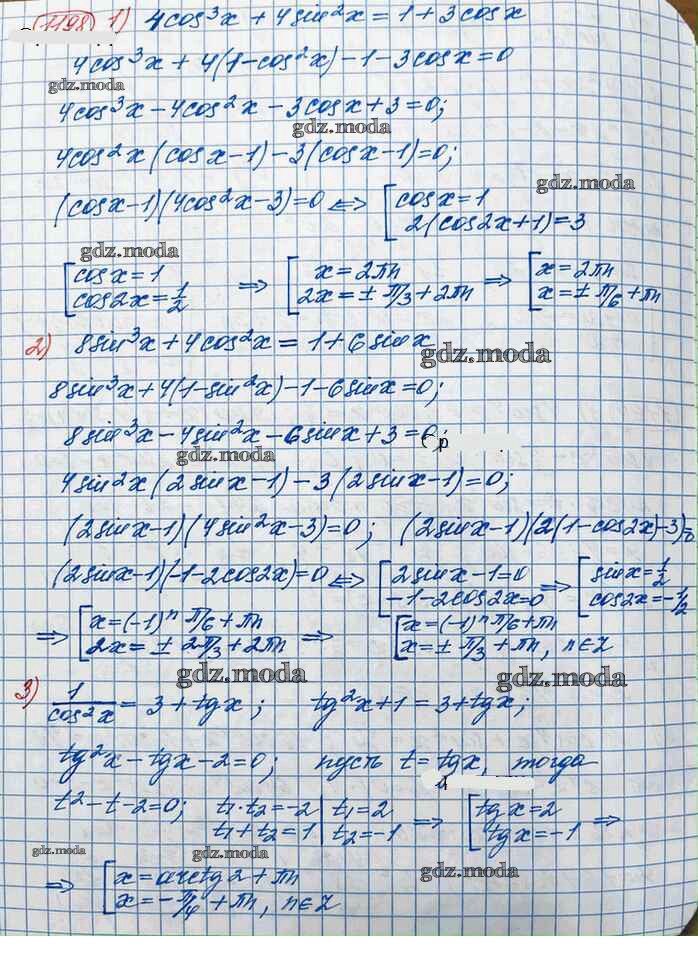 1198 1) 4cos³x + 4sin²x = 1 + 3cosx
4cos³x + 4(1-cos²x) - 1 - 3cosx = 0
gdz.moda
4cos³x - 4cos²x - 3cosx + 3 = 0;
gdz.moda
4cos²x(cosx-1) - 3(cosx-1) = 0;
gdz.moda
(cosx-1)(4cos²x-3) = 0 <=> [cosx = 1
2(cos2x+1) = 3
gdz.moda
[cosx = 1 => [x = 2πn => [x = 2πn
cos2x = 1/2 2x = ± π/3 + 2πn x = ± π/6 + πn
2) 8sin³x + 4cos²x = 1 + 6sinx
gdz.moda
8sin³x + 4(1-sin²x) - 1 - 6sinx = 0;
8sin³x - 4sin²x - 6sinx + 3 = 0;
р
gdz.moda
4sin²x(2sinx-1) - 3(2sinx-1) = 0;
(2sinx-1)(4sin²x-3) = 0; (2sinx-1)(2(1-cos2x)-3)=0
(2sinx-1)(-1-2cos2x) = 0 <=> [2sinx-1=0 => [sinx = 1/2
-1-2cos2x=0 cos2x = -1/2
=> [x = (-1)ⁿ π/6 + πn => [x = (-1)ⁿ π/6 + πn
2x = ± 2π/3 + 2πn x = ± π/3 + πn, n∈Z
gdz.moda
gdz.moda
3) 1/cos²x = 3 + tgx; tg²x + 1 = 3 + tgx;
tg²x - tgx - 2 = 0; пусть t = tgx, тогда
t² - t - 2 = 0; t₁·t₂ = -2 | t₁ = 2 => [tgx = 2 =>
t₁ + t₂ = 1 | t₂ = -1 tgx = -1
gdz.moda
gdz.moda
gdz.moda
=> [x = arctg2 + πn
x = -π/4 + πn, n∈Z
gdz.moda